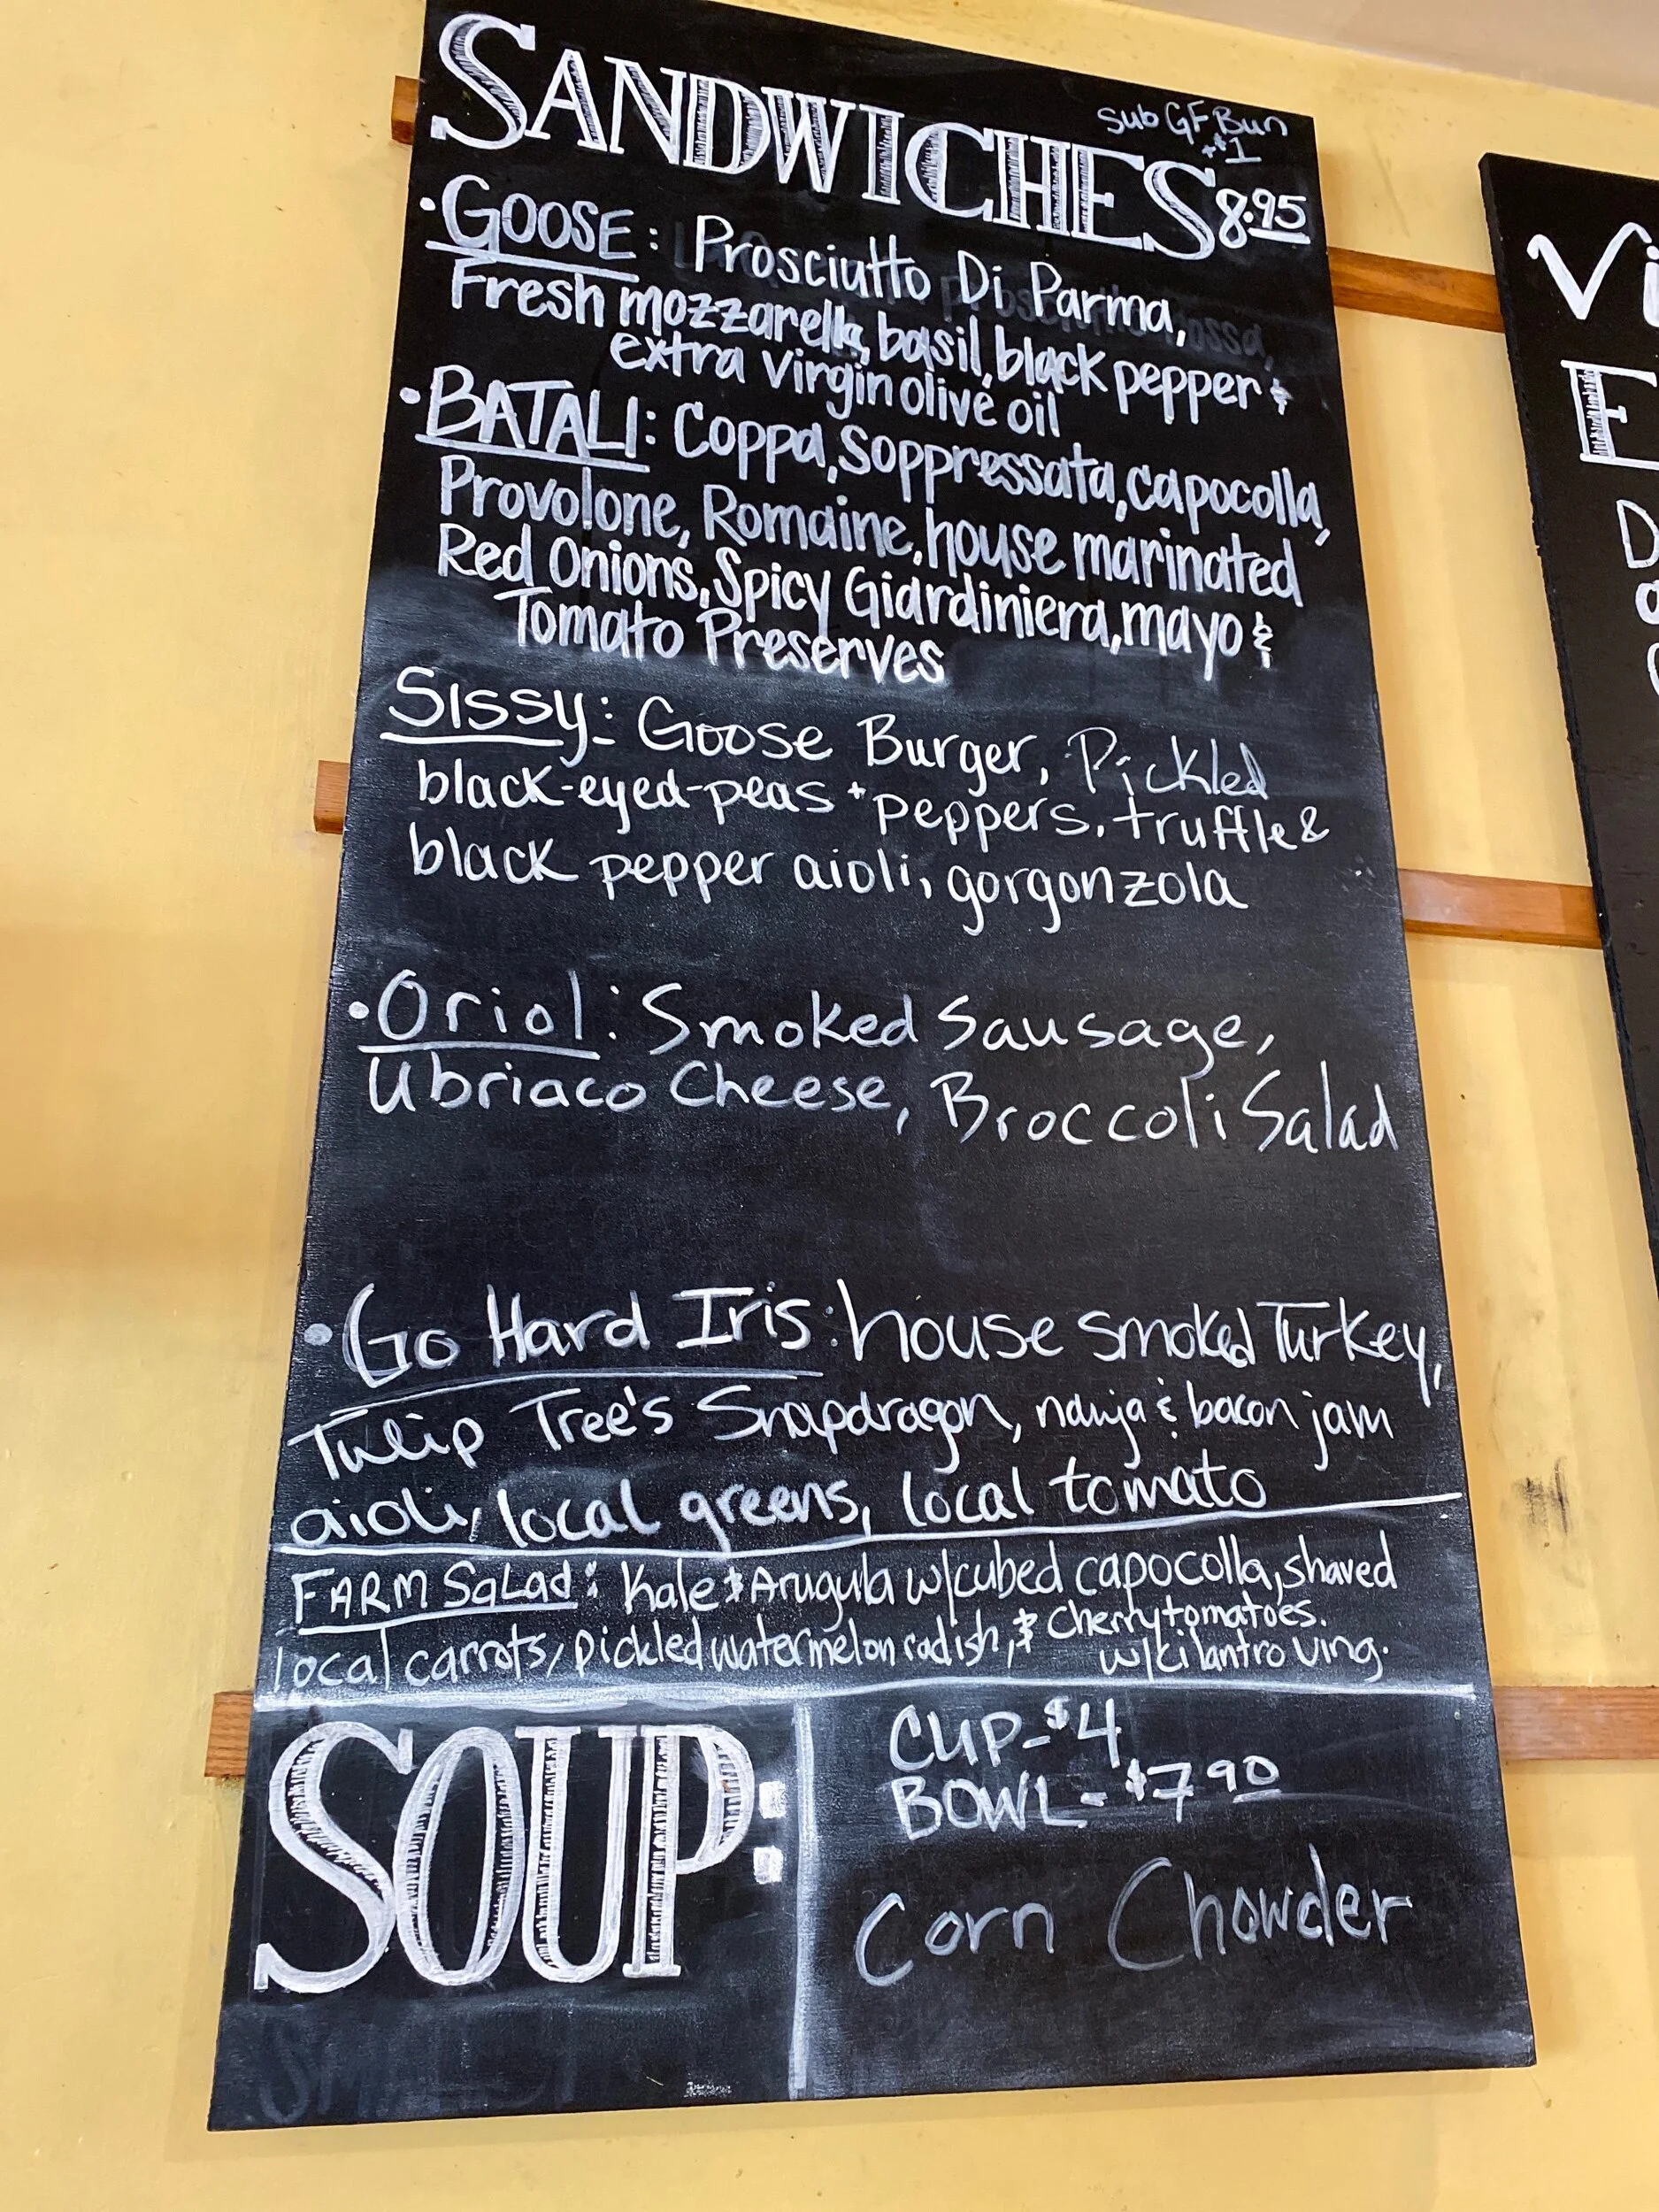 SANDWICHES
sub GF Bun
+$1
8.95
• GOOSE: Prosciutto Di Parma,
Fresh mozzarella, basil, black pepper &
extra virgin olive oil
• BATALI: Coppa, Soppressata, capocolla,
Provolone, Romaine, house marinated
Red Onions, Spicy Giardiniera, mayo &
Tomato Preserves
Sissy: Goose Burger, Pickled
black-eyed-peas + peppers, truffle &
black pepper aioli, gorgonzola
• Oriol: Smoked Sausage,
Ubriaco Cheese, Broccoli Salad
• Go Hard Iris: house smoked Turkey,
Tulip Tree's Snapdragon, nduja & bacon jam
aioli, local greens, local tomato
FARM SaLad: Kale & Arugula w/cubed capocolla, shaved
local carrots, pickled watermelon radish, & Cherry tomatoes.
w/cilantro Ving.
SOUP:
CUP- $4
BOWL- $7 90
Corn Chowder
Vi
E
D